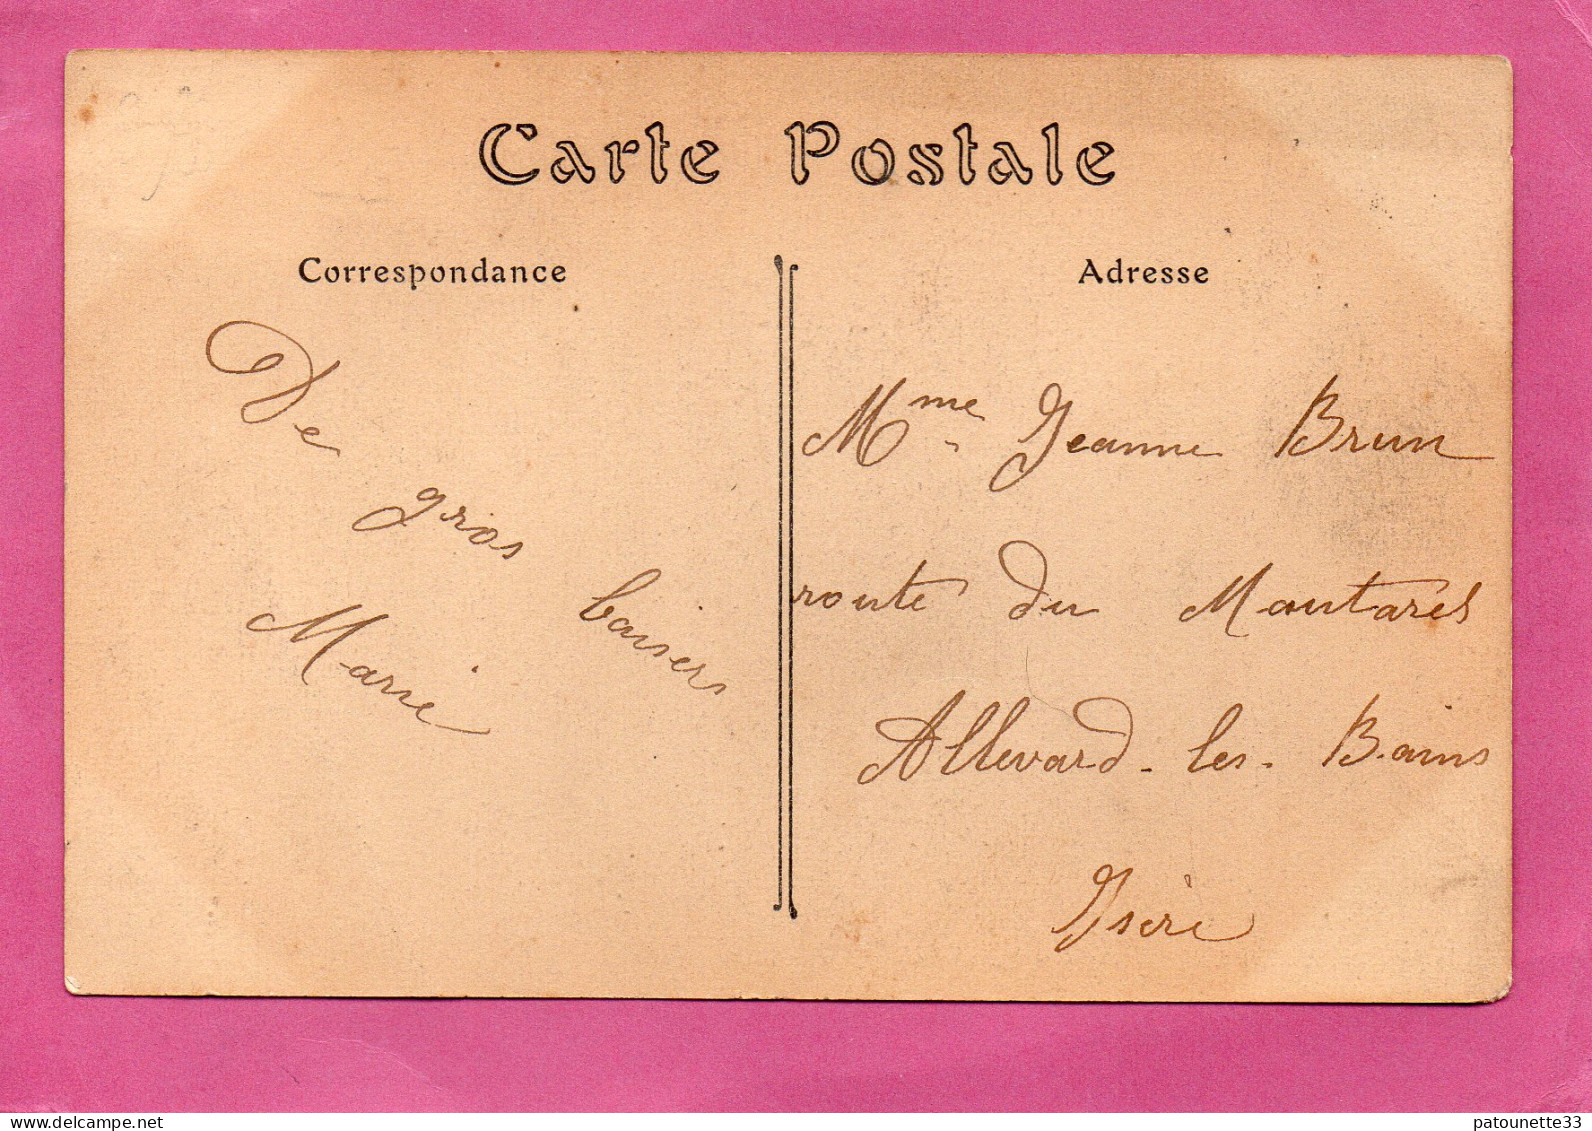 Carte Postale
Correspondance
De
gros
baisers
Marie
Adresse
Mme Jeanne Brun
route du Moutaret
Allevard-les-Bains
Isère
www.delcampe.net
patounette33